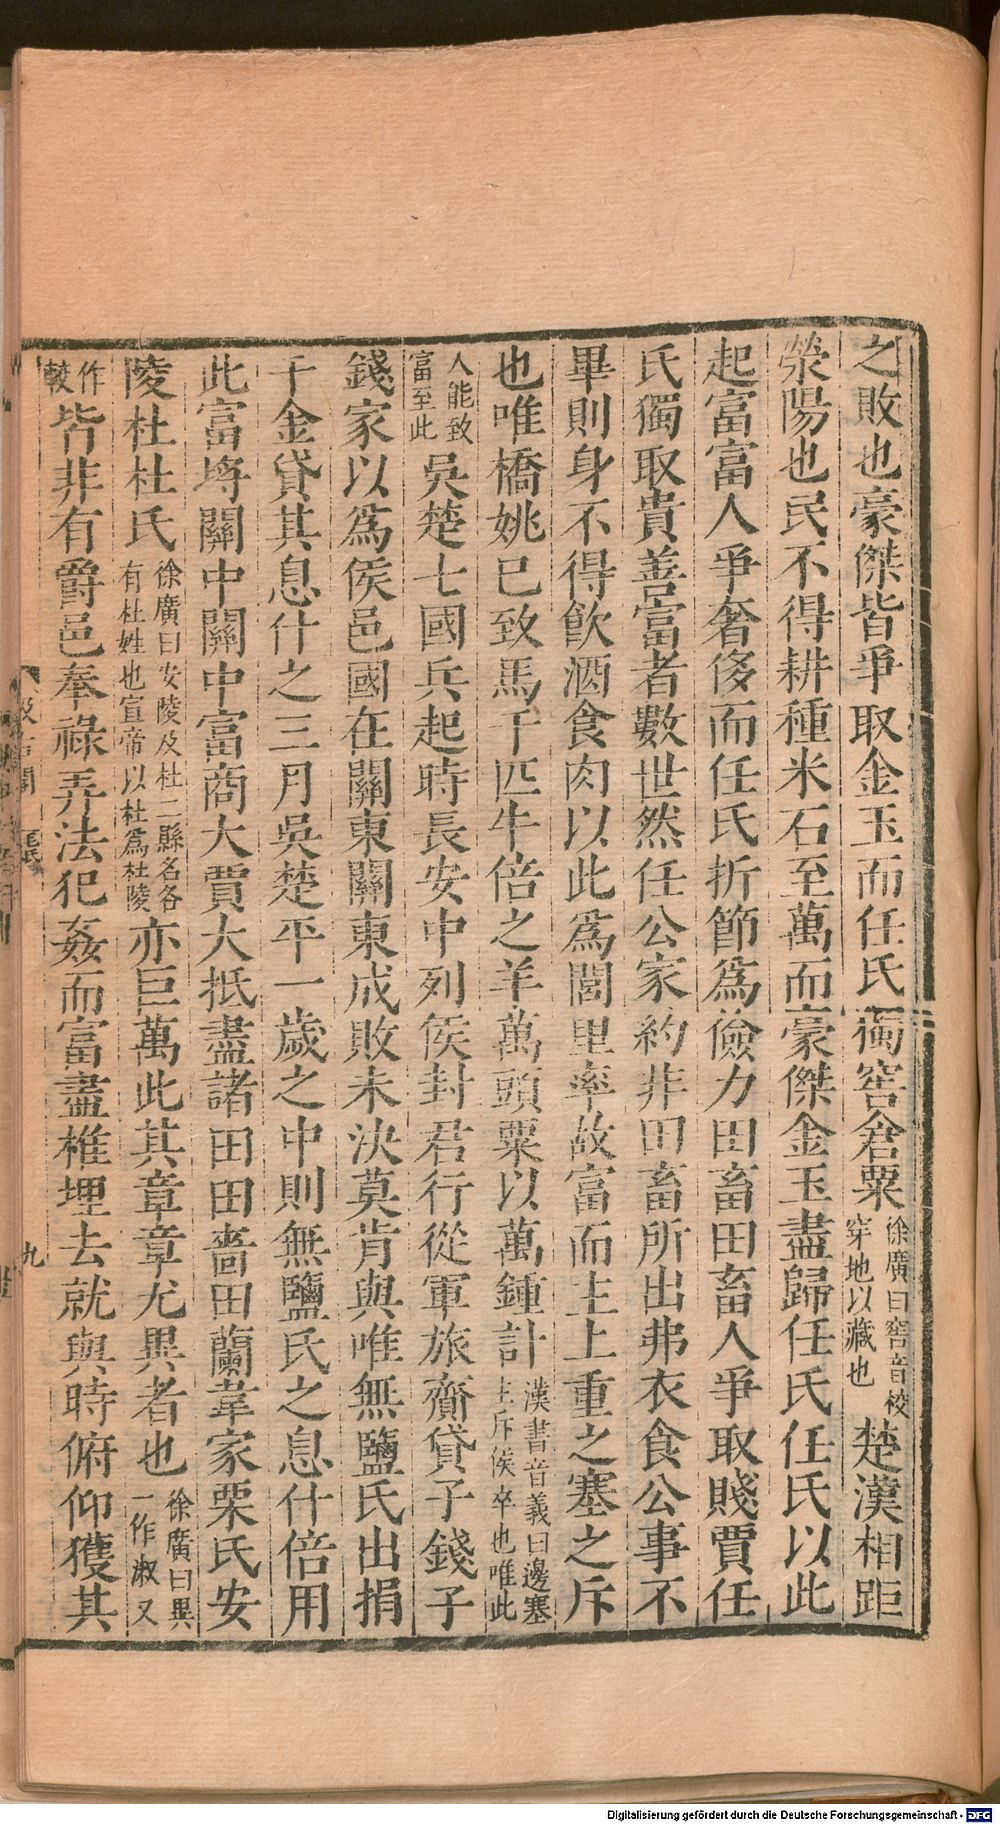 之敗也豪傑皆爭取金玉而任氏獨窖倉粟徐廣曰窖音校穿地以藏也楚漢相距
滎陽也民不得耕種米石至萬而豪傑金玉盡歸任氏任氏以此
起富富人爭奢侈而任氏折節爲儉力田畜田畜人爭取賤賈任
氏獨取貴善富者數世然任公家約非田畜所出弗衣食公事不
畢則身不得飮酒食肉以此爲閭里率故富而主上重之塞之斥
也唯橋姚已致馬千匹牛倍之羊萬頭粟以萬鍾計漢書音義曰邊塞主斥候卒也唯此
人能致富至此吳楚七國兵起時長安中列侯封君行從軍旅齎貸子錢子
錢家以爲侯邑國在關東關東成敗未決莫肯與唯無鹽氏出捐
千金貸其息什之三月吳楚平一歲之中則無鹽氏之息什倍用
此富埒關中關中富商大賈大抵盡諸田田嗇田蘭韋家栗氏安
陵杜杜氏徐廣曰安陵及杜二縣名各有杜姓也宣帝以杜爲杜陵亦巨萬此其章章尤異者也徐廣曰異一作淑又
作較皆非有爵邑奉祿弄法犯姦而富盡椎埋去就與時俯仰獲其
九
Digitalisierung gefördert durch die Deutsche Forschungsgemeinschaft - DFG